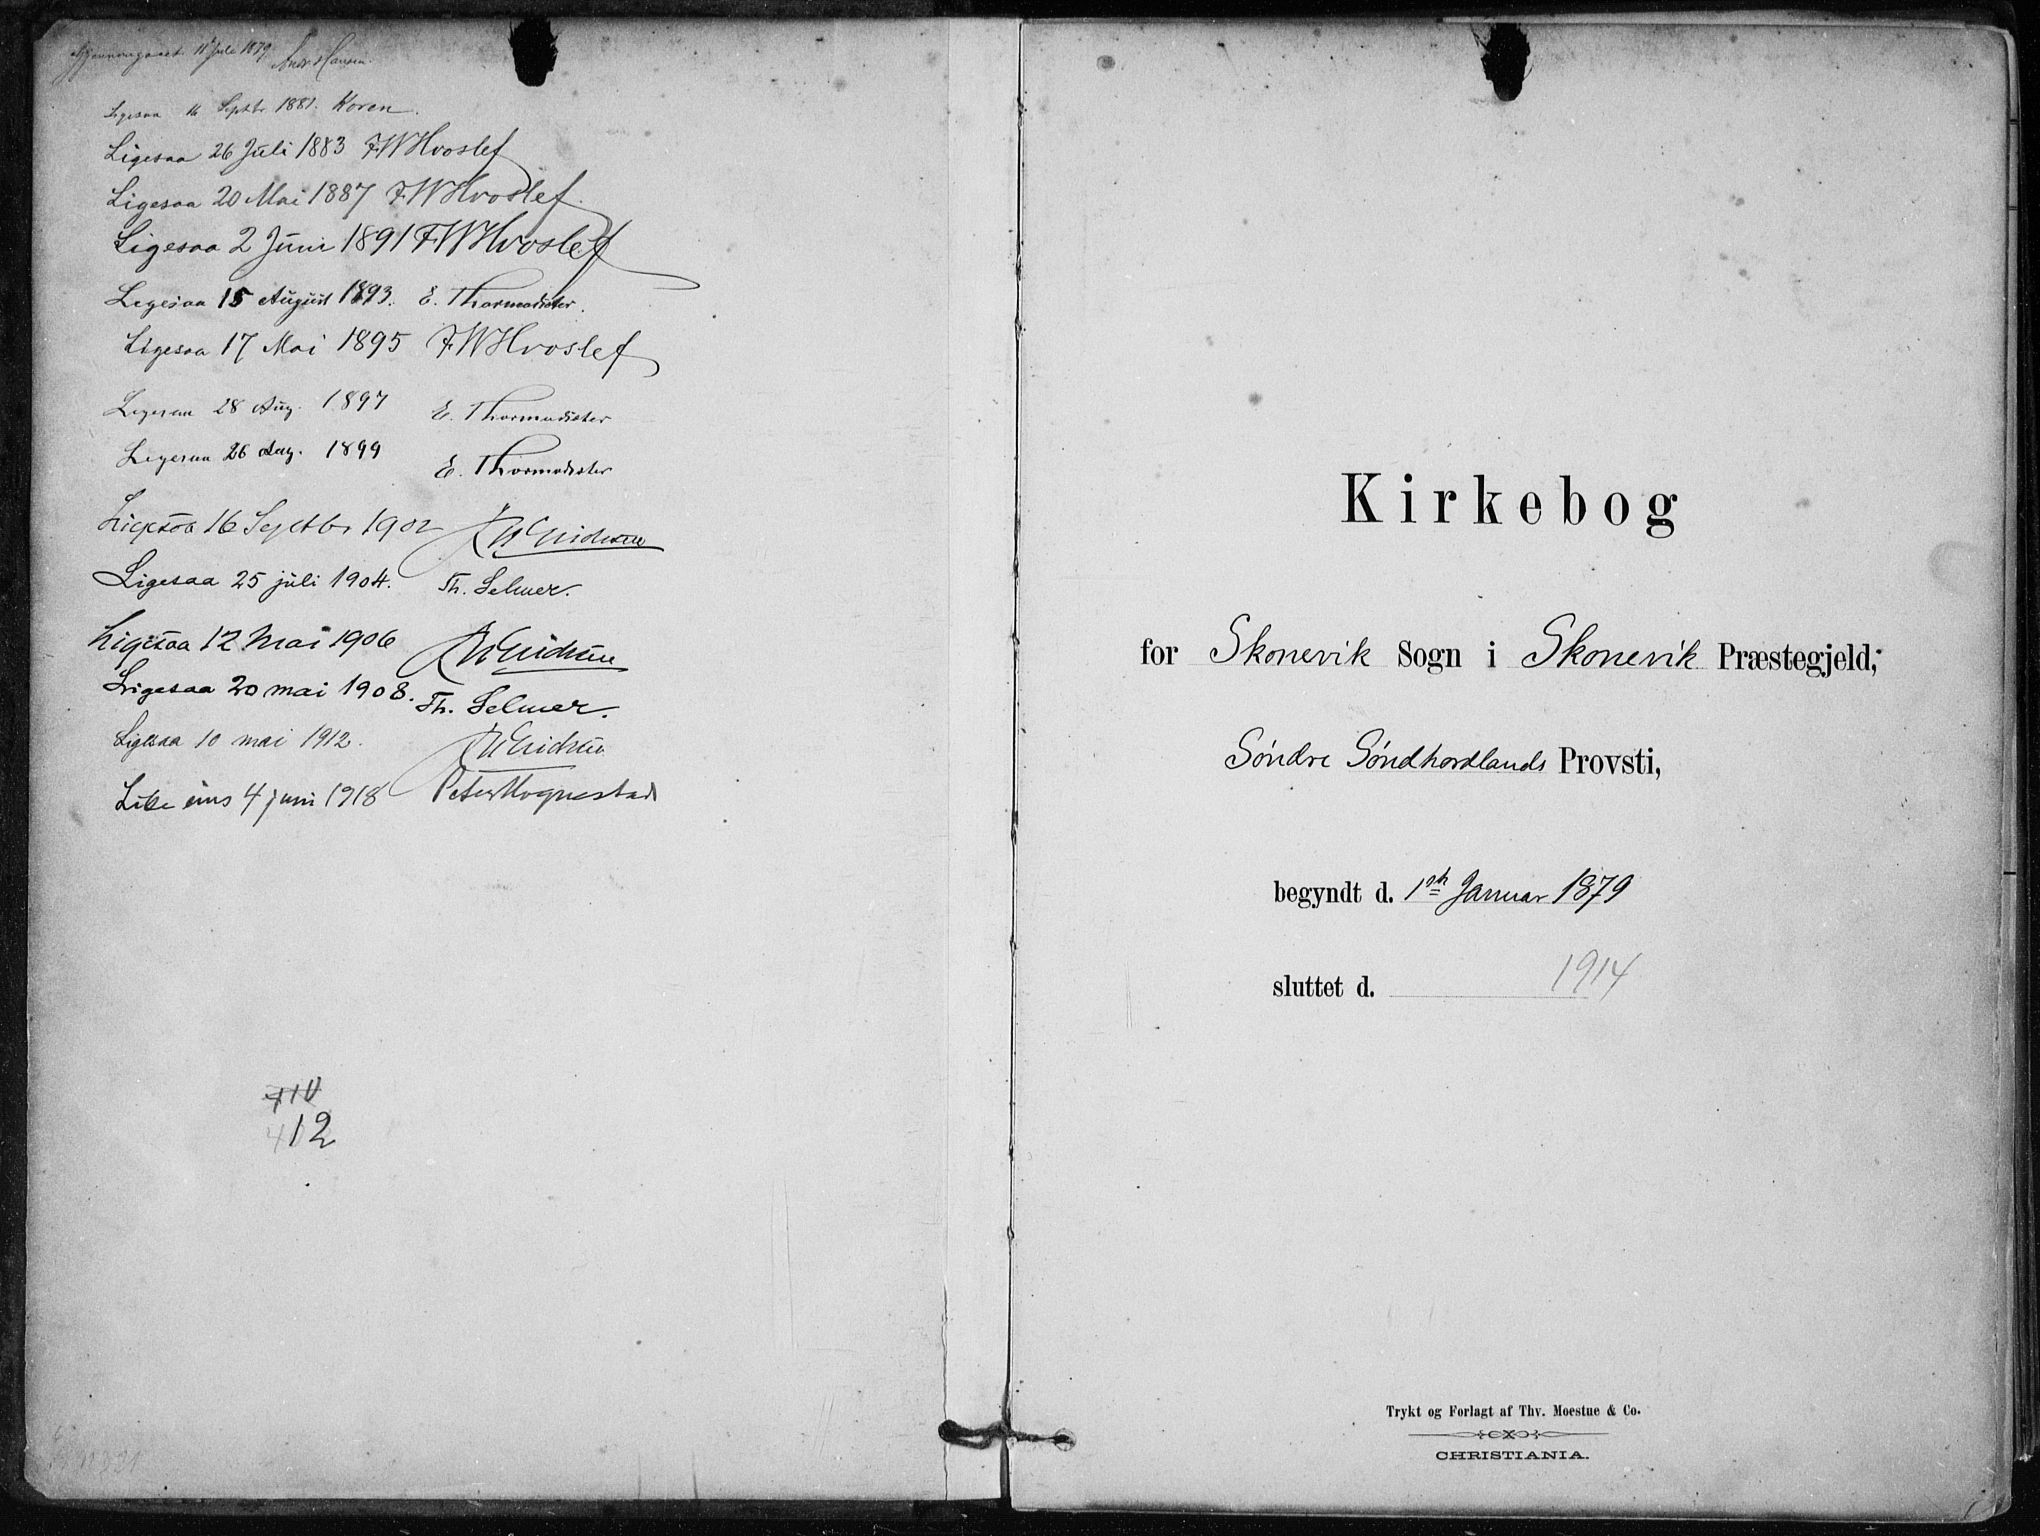 Gjennemgaaet 11 Juli 1879 Andr Hansen.
Ligesaa 16 Septbr 1881. Koren.
Ligesaa 26 Juli 1883 FWHvoslef
Ligesaa 20 Mai 1887 FWHvoslef.
Ligesaa 2 Juni 1891 FWHvoslef
Ligesaa 15 August 1893. E. Thormodsæter.
Ligesaa 17 Mai 1895 FWHvoslef
Ligesaa 28 Aug. 1897 E. Thormodsæter
Ligesaa 26 Aug. 1899 E. Thormodsæter
Ligesaa 16 Septbr 1902
Ligesaa 25 juli 1904. Th. Selmer.
Ligesaa 12 Mai 1906
Ligesaa 20 mai 1908. Th. Selmer.
Ligesaa 10 mai 1912.
Like eins 4 juni 1918 Peter Hognestad
412
Kirkebog
for Skonevik Sogn i Skonevik Præstegjeld,
Søndre Søndhordlands Provsti,
begyndt d. 1ste Januar 1879
sluttet d. 1914
Trykt og Forlagt af Thv. Moestue & Co.
CHRISTIANIA.